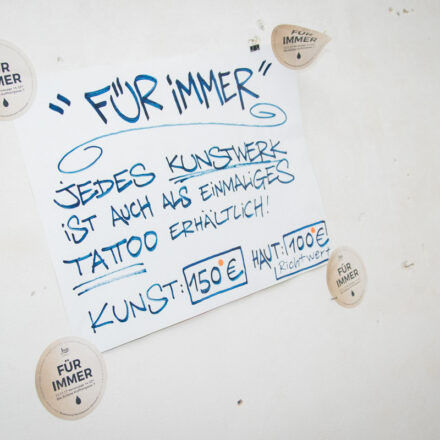 "FÜR iMMER"
JEDES KUNSTWERK
iST AUCH ALS EiNMALiGES
TATTOO ERHÄLTLiCH!
KUNST: 150€ HAUT: 100€
Richtwert
FÜR
IMMER
FÜR
IMMER
FÜR
IMMER
FÜR
IMMER